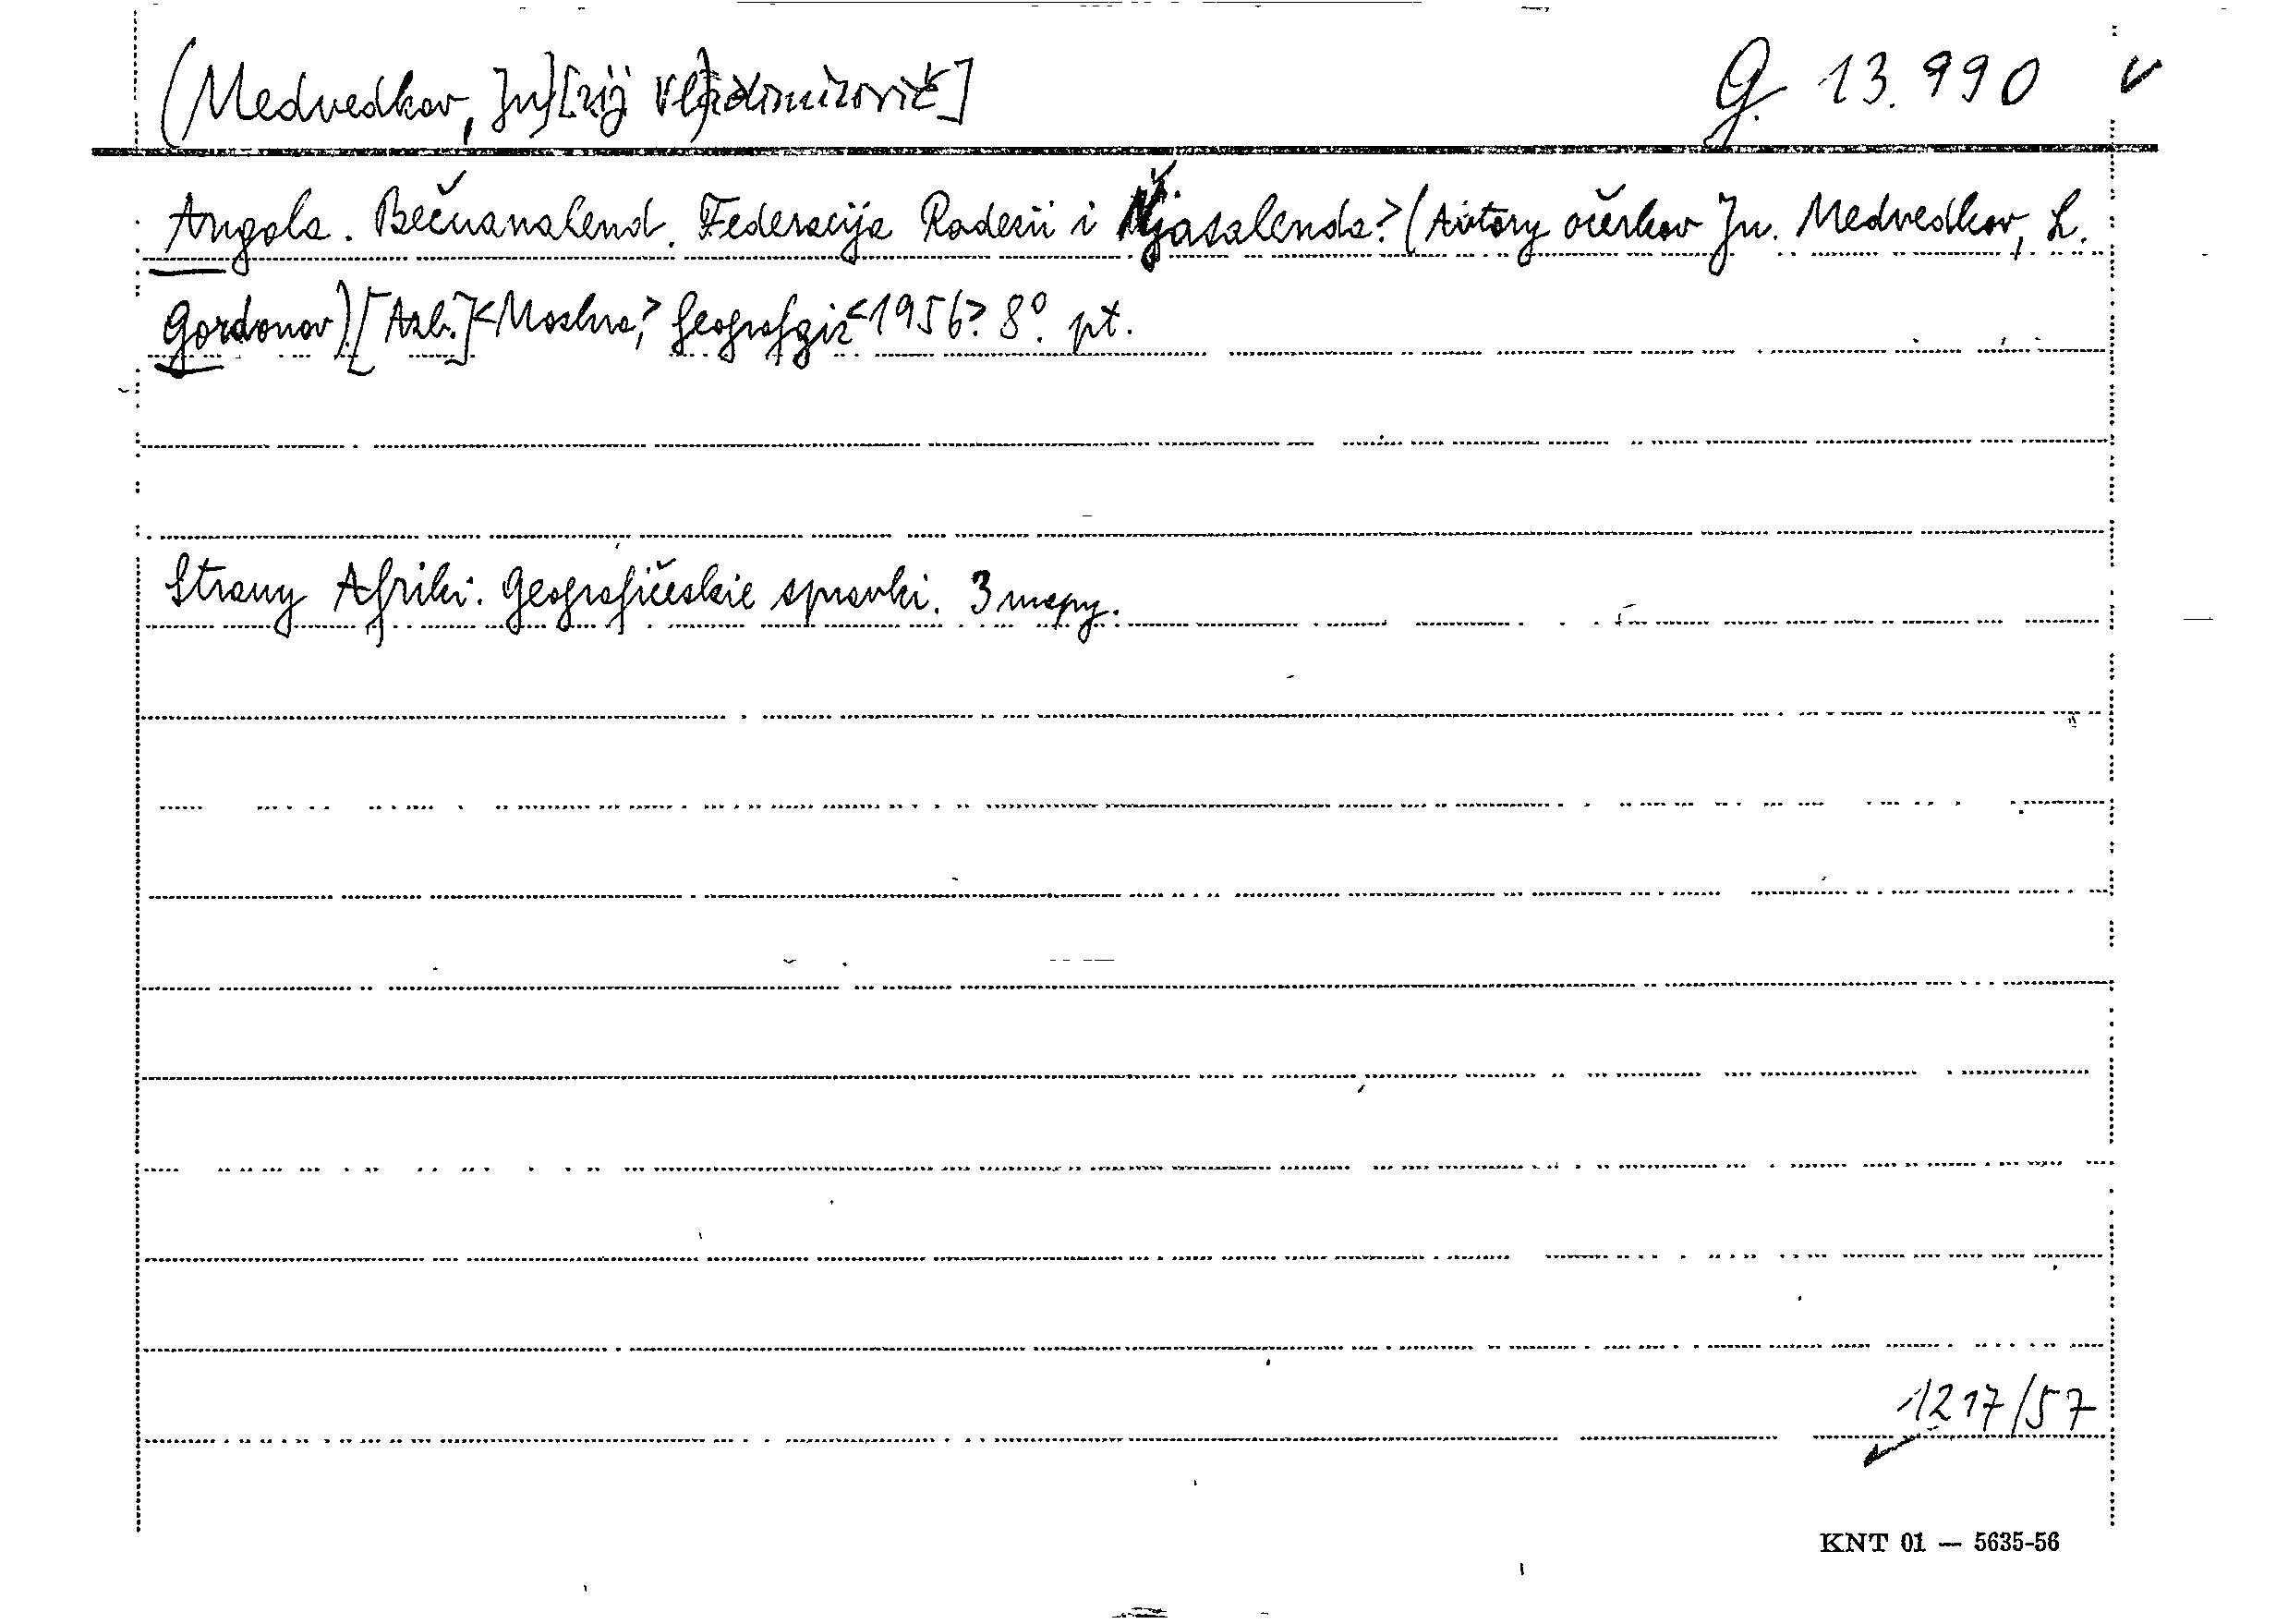 (Medvedkov, Ju)[rij Vladimirovič]
G. 13.990
Angola. Bečuanalend. Federacija Rodezii i Njasalenda? (Avtory očerkov Ju. Medvedkov, L.
Gordonov).[Azb.]<Moskva,> Geografgiz <1956>. 8°. pt.
Strany Afriki. Geografičeskie spravki. 3 mapy.
1217/57
KNT 01 — 5635-56